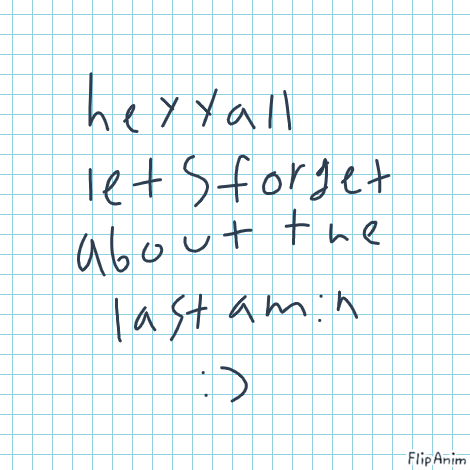 hey yall
lets forget
about the
last amin
:)
FlipAnim